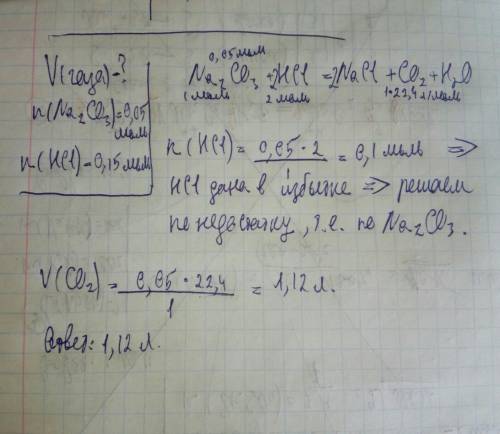 V(газа)-?
n(Na₂CO₃)=0,05 моль
n(HCl)=0,15 моль
0,05 моль
Na₂CO₃+2HCl=2NaCl+CO₂+H₂O
1 моль 2 моль 1·22,4 л/моль
n(HCl)= 0,05·2 = 0,1 моль =>
HCl дана в избытке => решаем
по недостатку, т.е. по Na₂CO₃.
V(CO₂)= 0,05·22,4 = 1,12 л.
1
Ответ: 1,12 л.